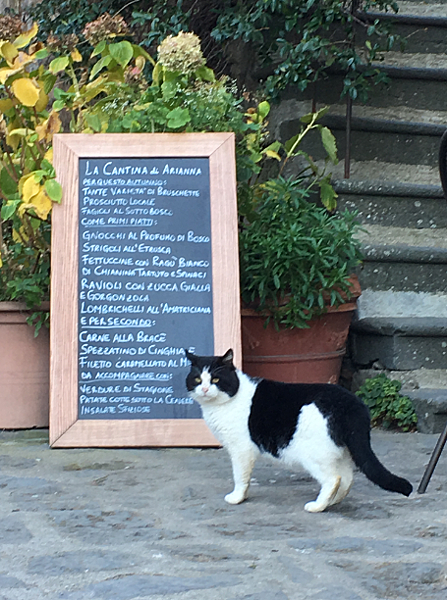 LA CANTINA di ARIANNA
PER QUESTO AUTUNNO:
TANTE VARIETA' DI BRUSCHETTE
PROSCIUTTO LOCALE
FAGIOLI AL SOTTO BOSCO
COME PRIMI PIATTI:
GNOCCHI AL PROFUMO DI BOSCO
STRIGOLI ALL'ETRUSCA
FETTUCCINE CON RAGÙ BIANCO
DI CHIANINA TARTUFO E SPINACI
RAVIOLI CON ZUCCA GIALLA
E GORGONZOLA
LOMBRICHELLI ALL'AMATRICIANA
E PER SECONDO:
CARNE ALLA BRACE
SPEZZATINO DI CINGHIALE
FILETTO CARAMELLATO AL
DA ACCOMPAGNARE CON:
VERDURE DI STAGIONE
PATATE COTTE SOTTO LA CENERE
INSALATE SFIZIOSE